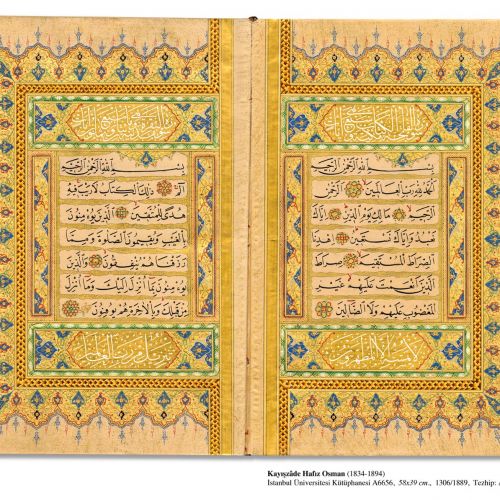 بِسْمِ اللّٰهِ الرَّحْمٰنِ الرَّحِيمِ
اَلْحَمْدُ لِلّٰهِ رَبِّ الْعَالَمِينَ الرَّحْمٰنِ
الرَّحِيمِ مَالِكِ يَوْمِ الدِّينِ اِيَّاكَ
نَعْبُدُ وَاِيَّاكَ نَسْتَعِينُ اِهْدِنَا
الصِّرَاطَ الْمُسْتَقِيمَ صِرَاطَ
الَّذِينَ اَنْعَمْتَ عَلَيْهِمْ غَيْرِ
الْمَغْضُوبِ عَلَيْهِمْ وَلَا الضَّالِّينَ
لا يمسه الا المطهرون
بِسْمِ اللّٰهِ الرَّحْمٰنِ الرَّحِيمِ
الٓمٓ ذٰلِكَ الْكِتَابُ لَا رَيْبَ فِيهِ
هُدًى لِلْمُتَّقِينَ الَّذِينَ يُؤْمِنُونَ
بِالْغَيْبِ وَيُقِيمُونَ الصَّلٰوةَ وَمِمَّا
رَزَقْنَاهُمْ يُنْفِقُونَ وَالَّذِينَ
يُؤْمِنُونَ بِمَا اُنْزِلَ اِلَيْكَ وَمَا اُنْزِلَ
مِنْ قَبْلِكَ وَبِالْاٰخِرَةِ هُمْ يُوقِنُونَ
تنزيل من رب العالمين
Kayışzâde Hafız Osman (1834-1894)
İstanbul Üniversitesi Kütüphanesi A6656, 58x39 cm., 1306/1889, Tezhip: